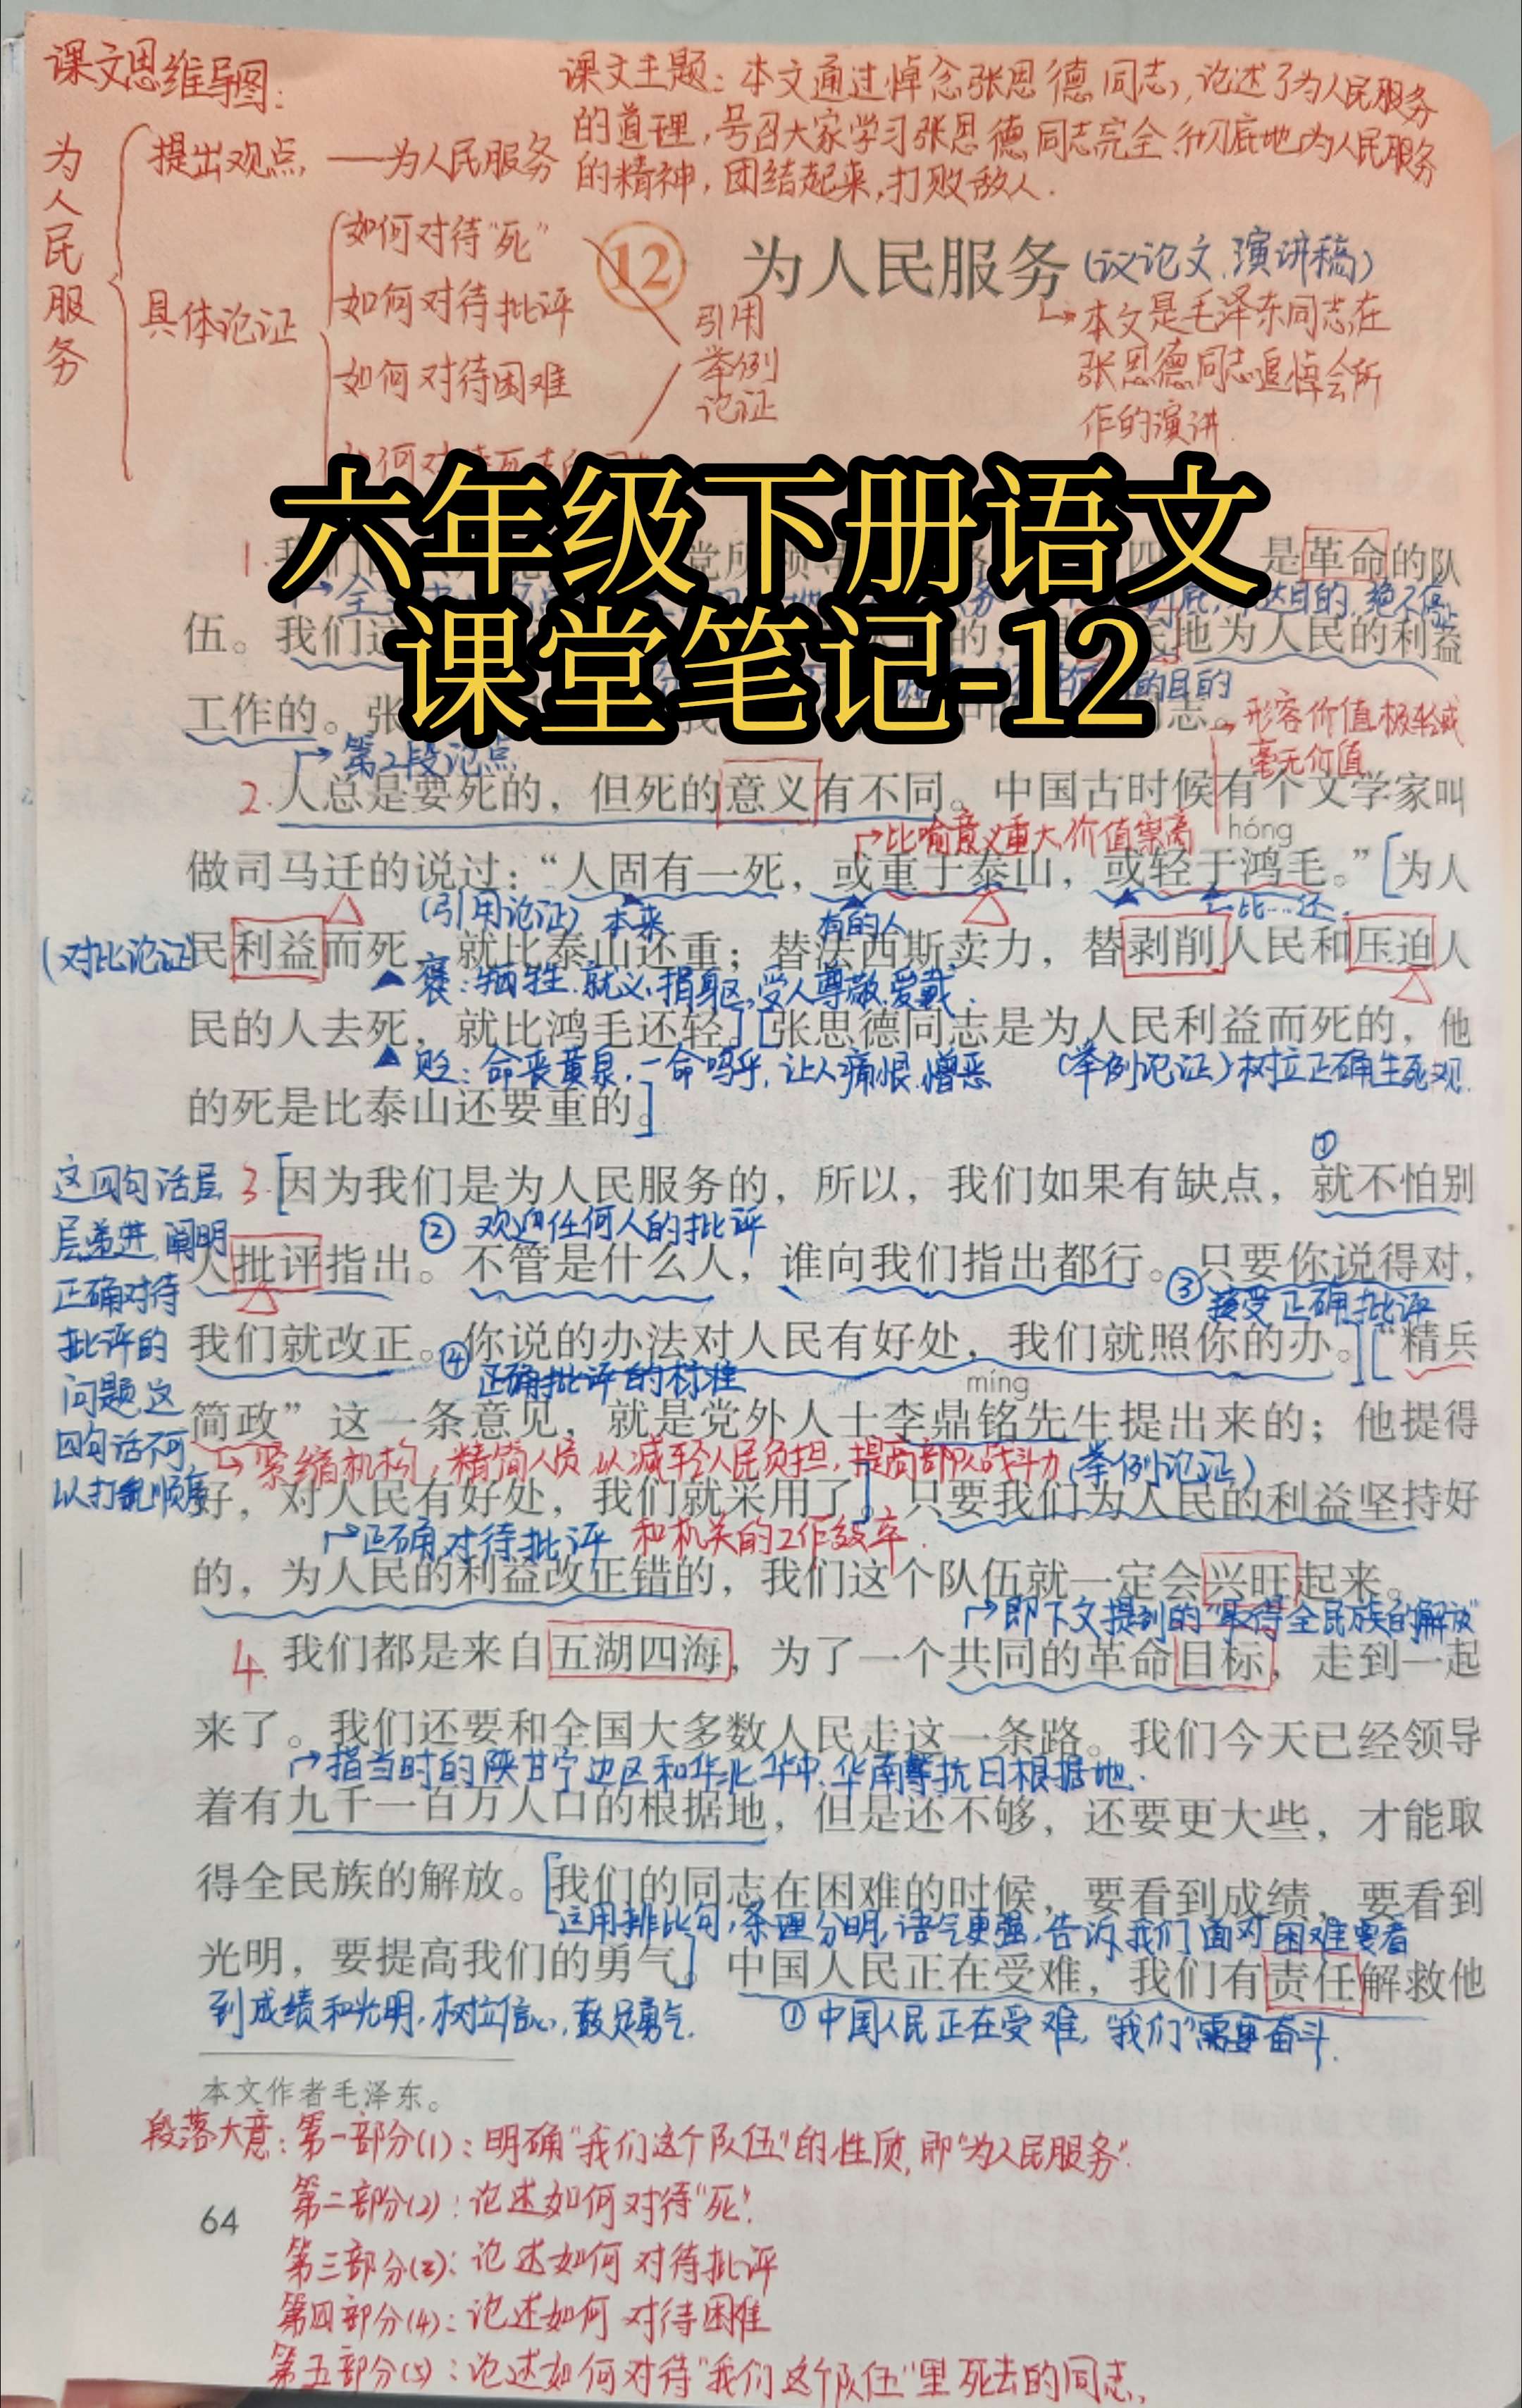 课文思维导图:
课文主题:本文通过悼念张思德同志,论述了为人民服务
的道理,号召大家学习张思德同志完全、彻底地为人民服务
的精神,团结起来,打败敌人.
为人民服务
提出观点,——为人民服务
具体论证
如何对待"死"
如何对待批评
如何对待困难
引用
举例
论证
12 为人民服务(议论文、演讲稿)
本文是毛泽东同志在
张思德同志追悼会所
作的演讲.
六年级下册语文
课堂笔记-12
1.我们 是革命的队
不达目的,绝不停止
伍。我们这 地为人民的利益
的目的
工作的。张 志。
形容价值极轻或
毫无价值
第2段论点
2.人总是要死的,但死的意义有不同。中国古时候有个文学家叫
比喻意义重大,价值崇高
hóng
做司马迁的说过:“人固有一死,或重于泰山,或轻于鸿毛。”[为人
(引用论证) 本来 有的人 比……还
(对比论证)
民利益而死,就比泰山还重;替法西斯卖力,替剥削人民和压迫人
褒:牺牲.就义.捐躯,受人尊敬.爱戴.
民的人去死,就比鸿毛还轻。][张思德同志是为人民利益而死的,他
贬:命丧黄泉.一命呜乎,让人痛恨.憎恶 (举例论证)树立正确生死观.
的死是比泰山还要重的。]
①
3.[因为我们是为人民服务的,所以,我们如果有缺点,就不怕别
② 欢迎任何人的批评
人批评指出。不管是什么人,谁向我们指出都行。只要你说得对,
③ 接受正确批评
我们就改正。你说的办法对人民有好处,我们就照你的办。][“精兵
④ 正确批评的标准
míng
简政”这一条意见,就是党外人士李鼎铭先生提出来的;他提得
紧缩机构,精简人员,以减轻人民负担,提高部队战斗力 (举例论证)
好,对人民有好处,我们就采用了。]只要我们为人民的利益坚持好
正确对待批评 和机关的工作效率.
的,为人民的利益改正错的,我们这个队伍就一定会兴旺起来。
这四句话层
层递进,阐明
正确对待
批评的
问题,这
四句话不可
以打乱顺序
即下文提到的“取得全民族的解放”
4.我们都是来自五湖四海,为了一个共同的革命目标,走到一起
来了。我们还要和全国大多数人民走这一条路。我们今天已经领导
指当时的陕甘宁边区和华北、华中、华南等抗日根据地.
着有九千一百万人口的根据地,但是还不够,还要更大些,才能取
得全民族的解放。[我们的同志在困难的时候,要看到成绩,要看到
运用排比句,条理分明,语气更强,告诉我们面对困难要看
光明,要提高我们的勇气。]中国人民正在受难,我们有责任解救他
到成绩和光明,树立信心,鼓足勇气.
①中国人民正在受难,“我们”需要奋斗.
本文作者毛泽东。
段落大意:第一部分(1):明确“我们这个队伍”的性质,即“为人民服务”.
第二部分(2):论述如何对待“死”.
第三部分(3):论述如何对待批评
第四部分(4):论述如何对待困难
第五部分(5):论述如何对待“我们这个队伍”里死去的同志.
64